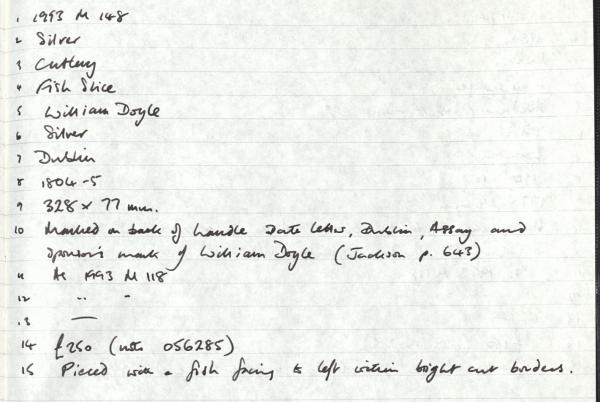 1 1993 M 148
2 Silver
3 Cutlery
4 Fish Slice
5 William Doyle
6 Silver
7 Dublin
8 1804-5
9 328 x 77 mm.
10 Marked on back of handle Date letter, Dublin, Assay and
sponsor's mark of William Doyle (Jackson p. 643)
11 As 1993 M 118
12 " "
13 —
14 £250 (note 056285)
15 Pierced with a fish facing to left within bright cut borders.